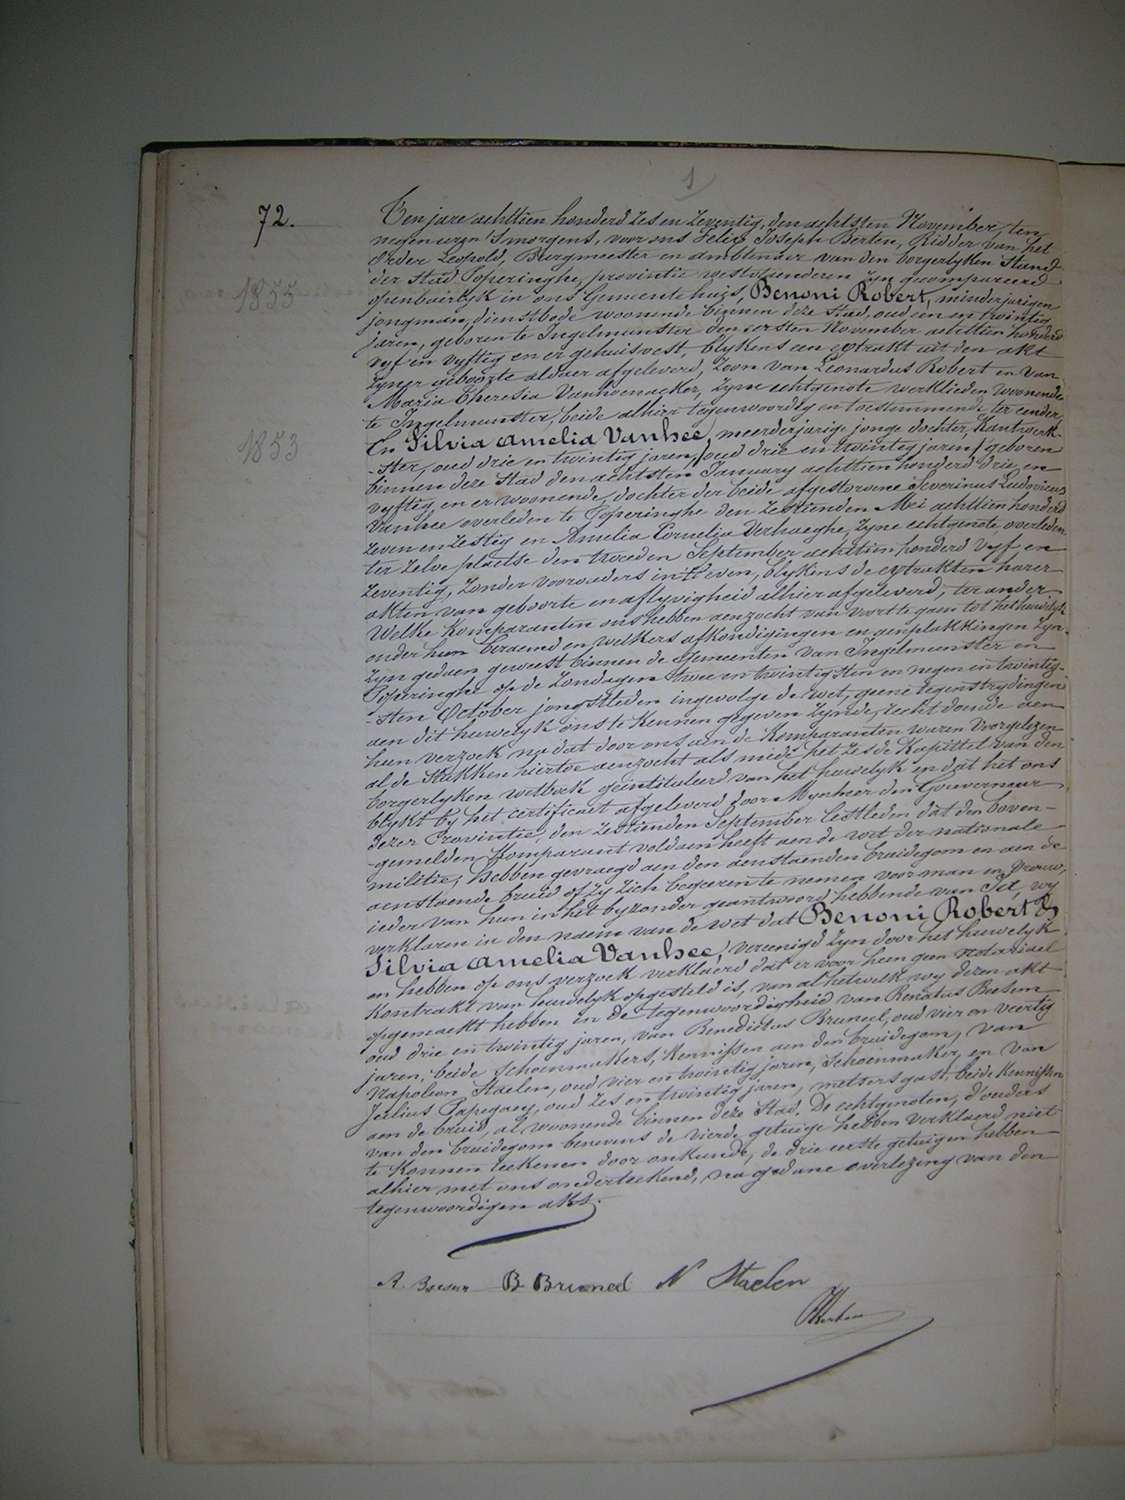 1
72.
Ten jare achttien honderd zes en zeventig, den achtsten November, ten
negen uren 's morgens, voor ons Felix Joseph Berten, Ridder van het
Order Leopold, Burgmeester en ambtenaer van den borgerlyken Stand
der Stad Poperinghe, provintie westvlaenderen zyn gecompareerd
openbaerlyk in ons Gemeentehuys, Benoni Robert, minderjarigen
1855
jongman, dienstbode woonende binnen deze Stad, oud een en twintig
jaren, geboren te Ingelmunster den eersten November achttien honderd
vyf en vyftig en er gehuisvest, blykens een extrakt uit den akt
zyner geboorte aldaer afgeleverd, zoon van Leonardus Robert en van
Maria Theresia Vanhoenacker, zyne echtgenote werklieden woonende
te Ingelmunster, beide alhier tegenwoordig en toestemmende ter eender,
En Silvia Amelia Vanhee, meerderjarige jonge dochter, kantwerk-
1853
-ster, oud drie en twintig jaren, oud drie en twintig jaren, geboren
binnen deze Stad den achtsten January achttien honderd drie en
vyftig, en er woonende, dochter der beide afgestorvene Severinus Ludovicus
Vanhee overleden te Poperinghe den zestienden Mei achttien honderd
zeven en zestig en Amelia Cornelia Verhaeghe, zyne echtgenote, overleden
ter zelve plaetse den tweeden September achttien honderd vyf en
zeventig, zonder voorouders in 't leven, blykens de extrakten harer
akten van geboorte en aflyvigheid alhier afgeleverd, ter ander
Welke komparanten ons hebben aenzocht van voort te gaen tot het huwelyk
onder hun beraemd en welkers afkondigingen en aenplakkingen zyn
zyn gedaen geweest binnen de Gemeenten van Ingelmunster en
Poperinghe op de Zondagen twee en twintigsten en negen en twintig-
-sten October jongstleden ingevolge de wet, geene tegenstrydingen
aen dit huwelyk ons te kennen gegeven zynde, recht doende aen
hun verzoek na dat door ons aen de komparanten waren voorgelezen
al de stukken hiertoe aenzocht als mede het zesde Kapittel van den
borgerlyken wetboek geïntituleerd van het huwelyk en dat het ons
blykt by het certificaet afgeleverd door Mynheer den Gouverneur
dezer Provintie, den zestienden September lestleden dat den boven-
-gemelden komparant voldaen heeft aen de wet der nationale
militie; hebben gevraegd aen den aenstaenden bruidegom en aen de
aenstaende bruid of zy zich begeeren te nemen voor man en vrouw,
ieder van hun in het byzonder geantwoord hebbende van Ja, wy
verklaren in den naem van de wet dat Benoni Robert &
Silvia Amelia Vanhee, vereenigd zyn door het huwelyk
en hebben op ons verzoek verklaerd dat er voor heen geen notariael
Kontrakt van huwelyk opgesteld is, van al hetwelk wy dezen akt
opgemaekt hebben in de tegenwoordigheid van Renatus
oud drie en twintig jaren, van Benedictus Bruneel, oud vier en veertig
jaren, beide schoenmakers, kennissen aen den bruidegom, van
Napoleon Staelen, oud vier en twintig jaren, schoenmaker, en van
Julius Papegaey, oud zes en twintig jaren, metsersgast, beide kennissen
aen de bruid, al woonende binnen deze Stad. De echtgenoten, d'ouders
van den bruidegom benevens de vierde getuige hebben verklaerd niet
te konnen teekenen door onkunde, de drie eerste getuigen hebben
alhier met ons onderteekend, na gedane overlezing van den
tegenwoordigen akt.
R. B Bruneel N Staelen
Berten